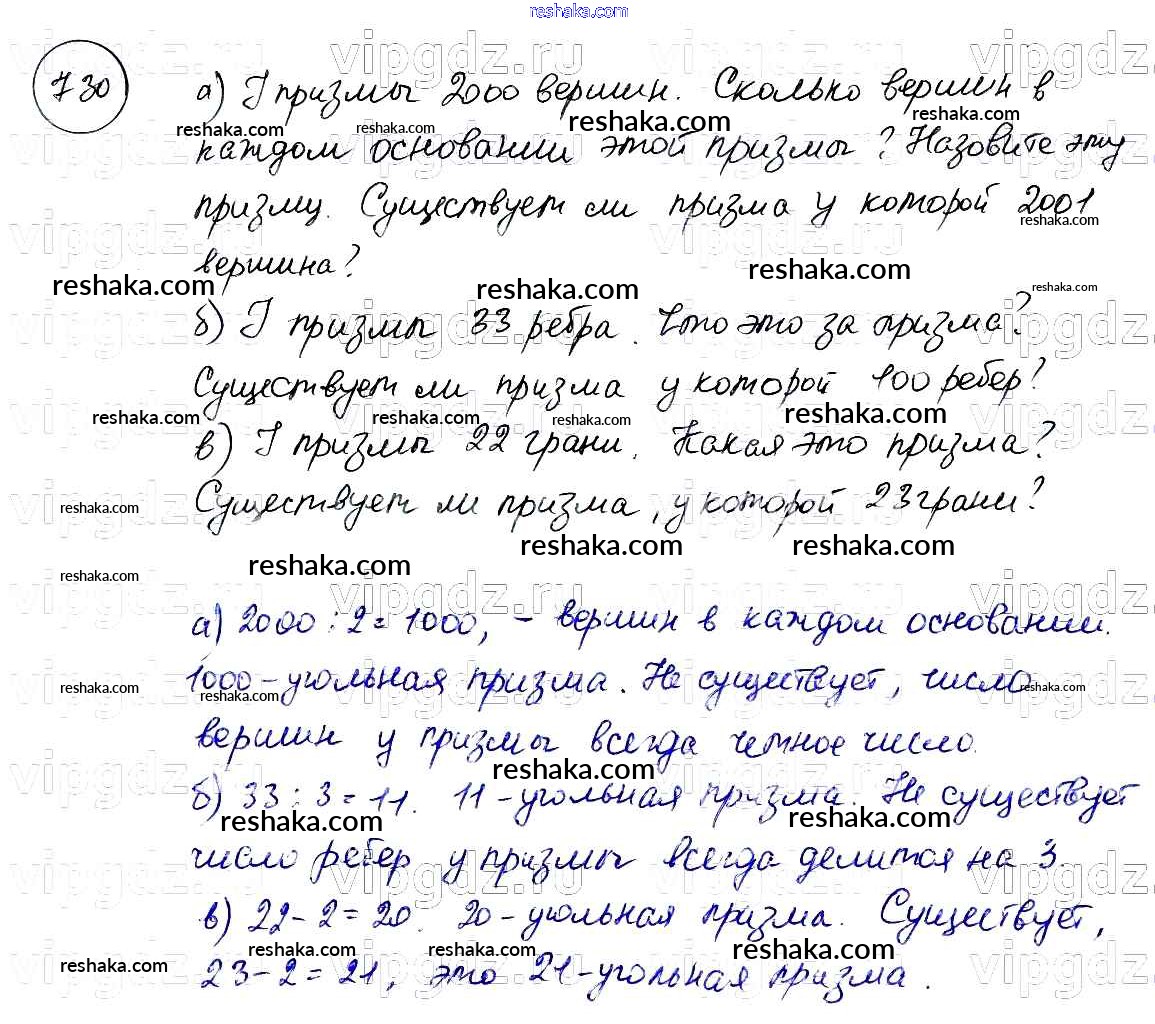 reshaka.com
730
а) У призмы 2000 вершин. Сколько вершин в
каждом основании этой призмы? Назовите эту
призму. Существует ли призма у которой 2001
вершина?
б) У призмы 33 ребра. Что это за призма?
Существует ли призма у которой 100 ребер?
в) У призмы 22 грани. Какая это призма?
Существует ли призма, у которой 23 грани?
а) 2000 : 2 = 1000, - вершин в каждом основании.
1000-угольная призма. Не существует, число
вершин у призмы всегда четное число.
б) 33 : 3 = 11. 11-угольная призма. Не существует
число ребер у призмы всегда делится на 3.
в) 22 - 2 = 20. 20-угольная призма. Существует,
23 - 2 = 21, это 21-угольная призма.